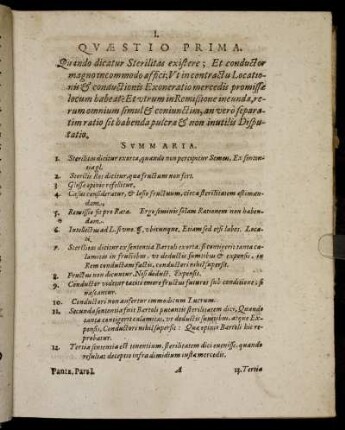 I.
QVÆSTIO PRIMA.
Quando dicatur Sterilitas existere; Et conductor
magno incommodo affici; Vt in contractu Locatio-
nis & conductionis Exoneratio mercedis promissæ
locum habeat? Et vtrum in Remissione ineunda, re-
rum omnium simul & coniunctim, an verò separa-
tim ratio sit habenda pulcra & non inutilis Dispu-
tatio.
SVMMARIA.
1. Sterilitas dicitur exorta, quando non percipitur Semen. Ex senten-
tia gl.
2. Sterilis Bos dicitur, qua fructum non fert.
3. Glossa opinio refellitur.
4. Casus consideratur, & læsio fructuum, circa sterilitatem æstiman-
dam.
5. Remissio fit pro Rata. Ergo seminis solam Rationem non haben-
dam.
6. Intellectus ad L. si vno. §. vbicunque. Etiam sed etsi labes. Loca-
ti.
7. Sterilitas dicitur ex sententia Bartoli exorta, si contigerit tanta ca-
lamitas in fructibus, vt deductis sumtibus & expensis, in
Rem conductam factis, conductori nihil supersit.
8. Fructus non dicuntur, Nisi deduct. Expensis.
9. Conductor videtur tacitè emere fructus futuros sub conditione, si
nascantur.
10. Conductori non aufertur immodicum Lucrum.
11. Secunda sententia fuit Bartoli putantis sterilitatem dici, Quando
tanta contigerit calamitas, vt deductis sumtibus, atque Ex-
pensis, Conductori nihil supersit: Quæ opinio Bartoli hic re-
probatur.
12. Tertia sententia est tenentium, sterilitatem dici euenisse, quando
resultat deceptio infra dimidium iustæ mercedis.
Pancz. Pars I. A 13. Tertia